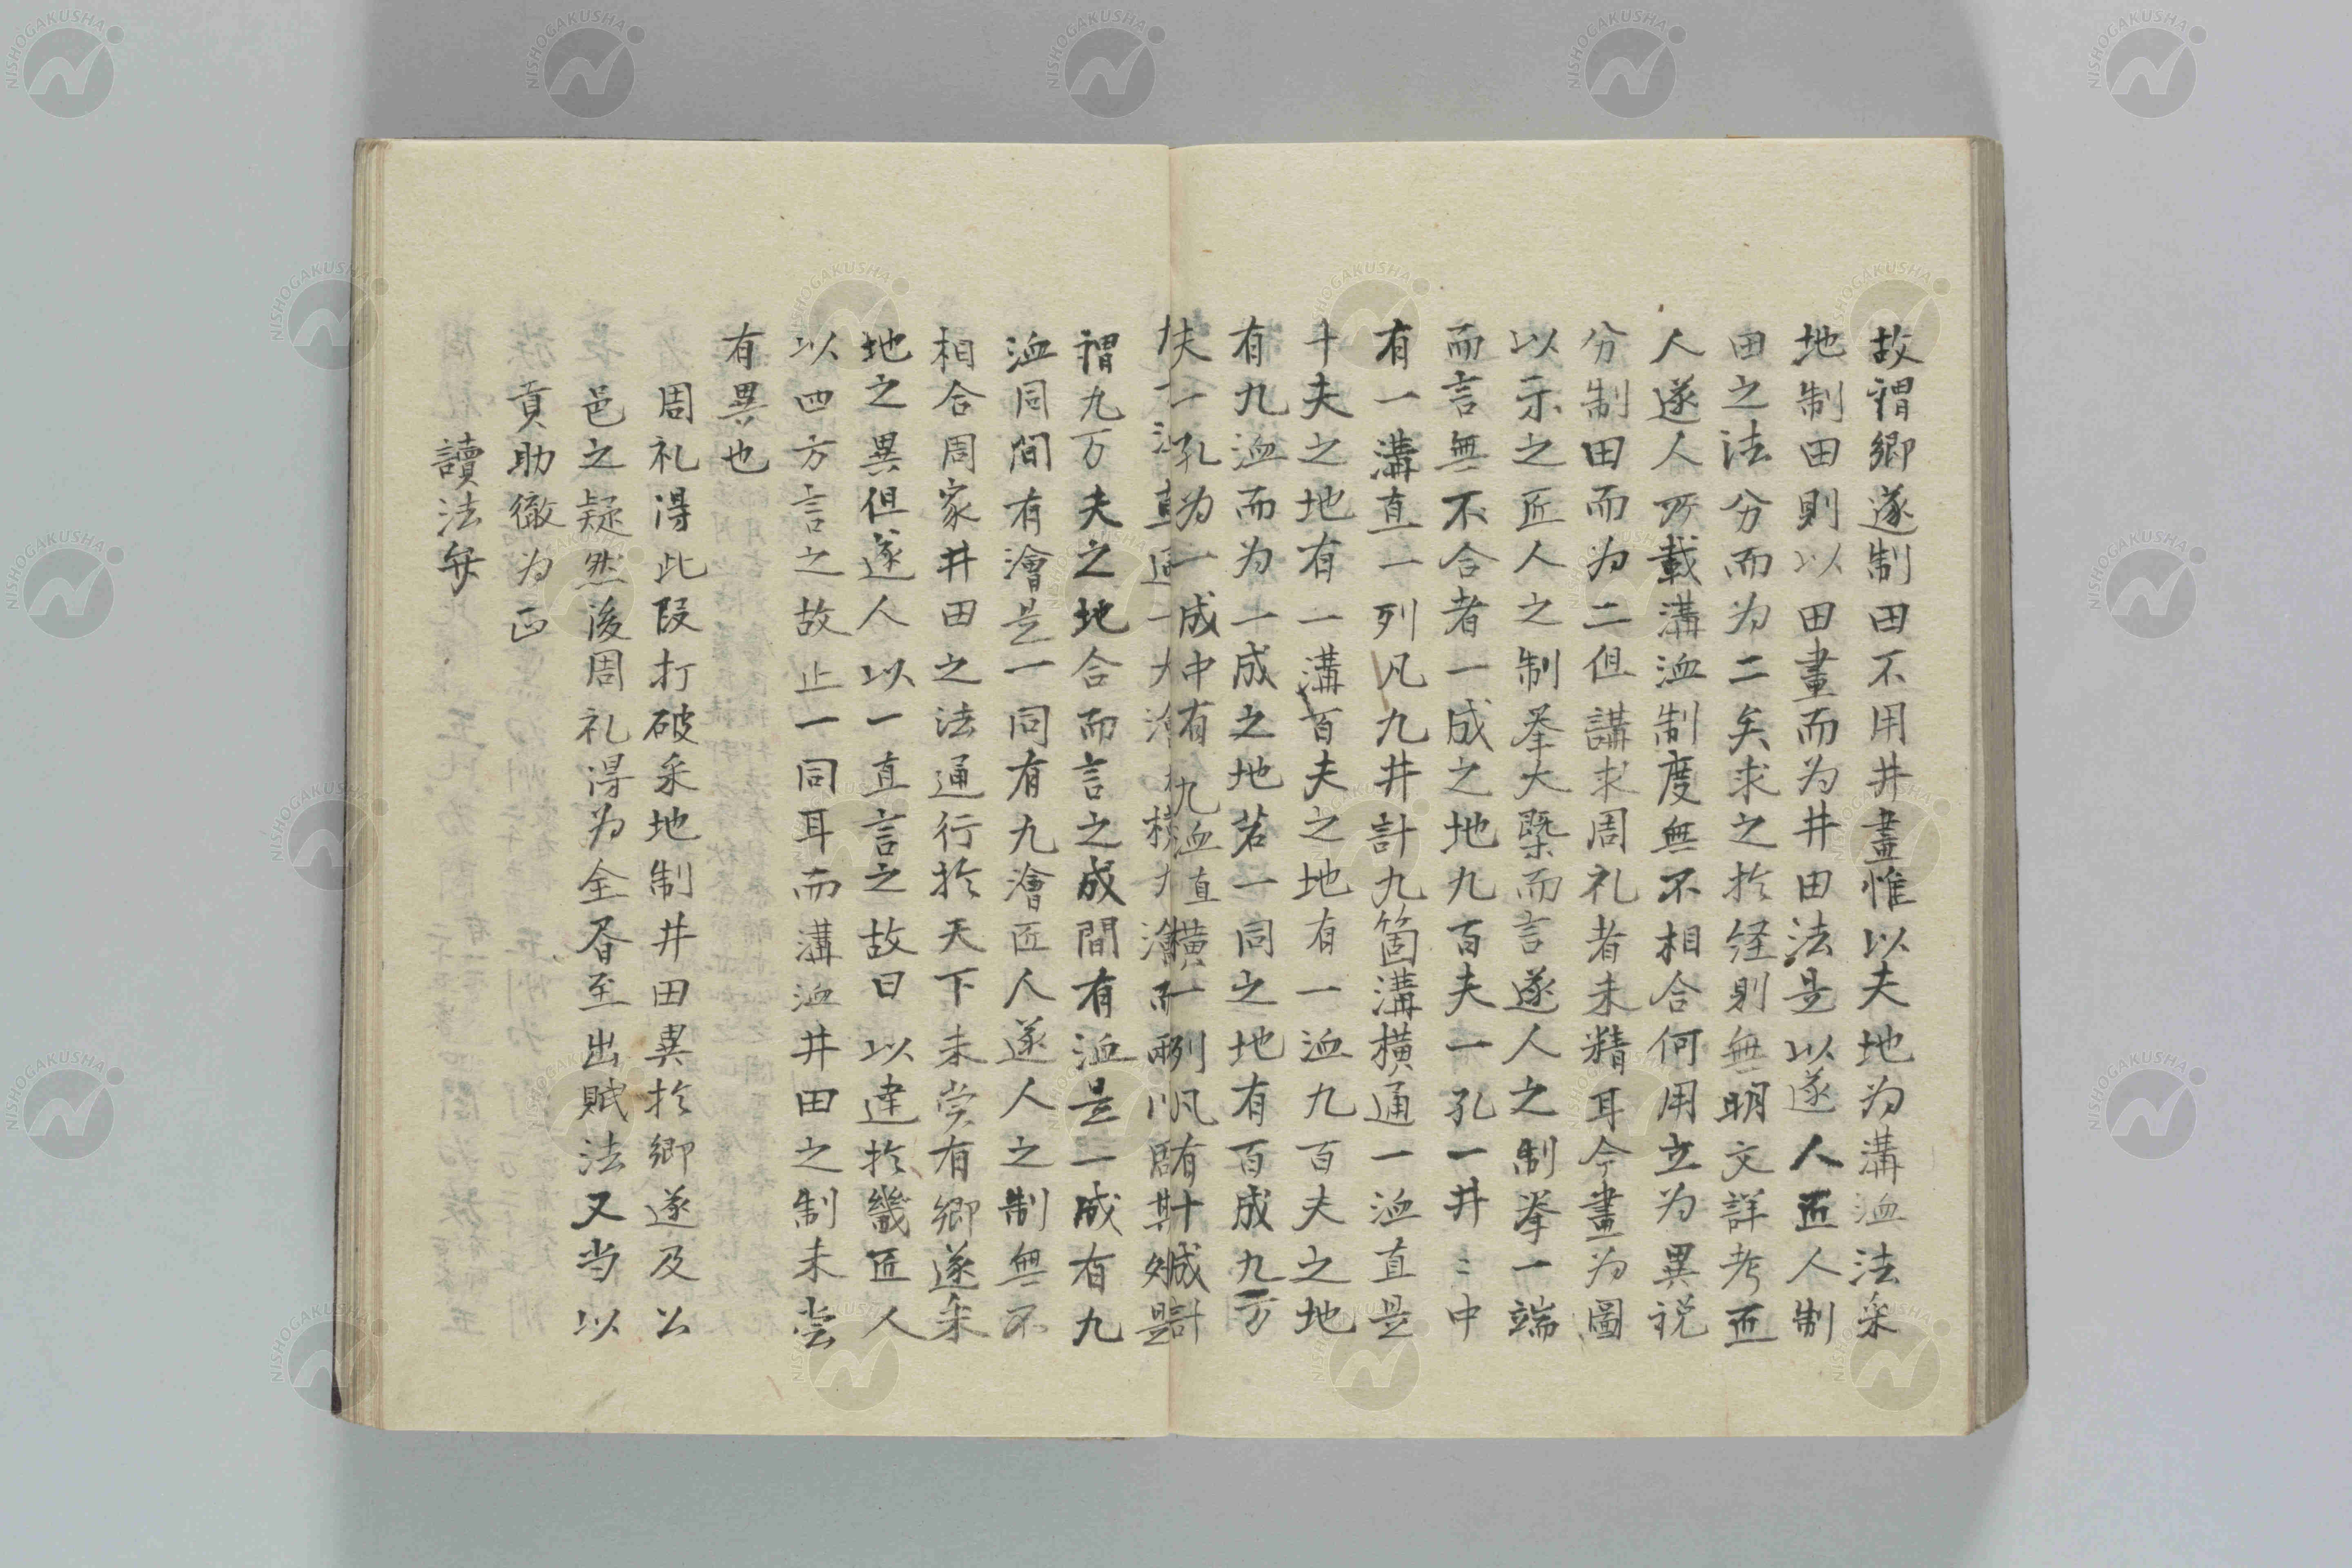 故謂鄉遂制田不用井畫惟以夫地为溝洫法采
地制田則以田畫而为井田法是以遂人匠人制
田之法分而为二矣求之扵经則無明文詳考匠
人遂人所載溝洫制度無不相合何用立为異説
分制田而为二但講求周礼者未精耳今畫为圖
以示之匠人之制举大槩而言遂人之制举一端
而言無不合者一成之地九百夫一孔一井〻中
有一溝直一列凡九井計九箇溝橫通一洫直是
十夫之地有一溝百夫之地有一洫九百夫之地
有九洫而为一成之地若一同之地有百成九万
夫一孔为一成中有九洫直橫一列凡有十成計
謂九万夫之地合而言之成間有洫是一成有九
洫同間有澮是一同有九澮匠人遂人之制無不
相合周家井田之法通行扵天下未尝有鄉遂采
地之異但遂人以一直言之故曰以達扵畿匠人
以四方言之故止一同耳而溝洫井田之制未尝
有異也
周礼得此段打破采地制井田異扵鄉遂及公
邑之疑然後周礼得为全書至出賦法又当以
貢助徹为正
讀法弁
NISHOGAKUSHA